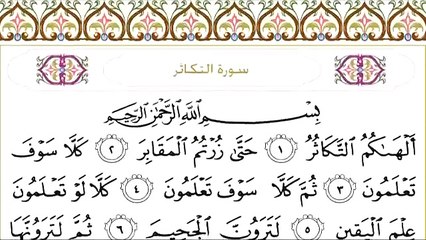 سورة التكاثر
بِسْمِ اللَّهِ الرَّحْمَٰنِ الرَّحِيمِ
أَلْهَاكُمُ التَّكَاثُرُ ١ حَتَّىٰ زُرْتُمُ الْمَقَابِرَ ٢ كَلَّا سَوْفَ
تَعْلَمُونَ ٣ ثُمَّ كَلَّا سَوْفَ تَعْلَمُونَ ٤ كَلَّا لَوْ تَعْلَمُونَ
عِلْمَ الْيَقِينِ ٥ لَتَرَوُنَّ الْجَحِيمَ ٦ ثُمَّ لَتَرَوُنَّهَا